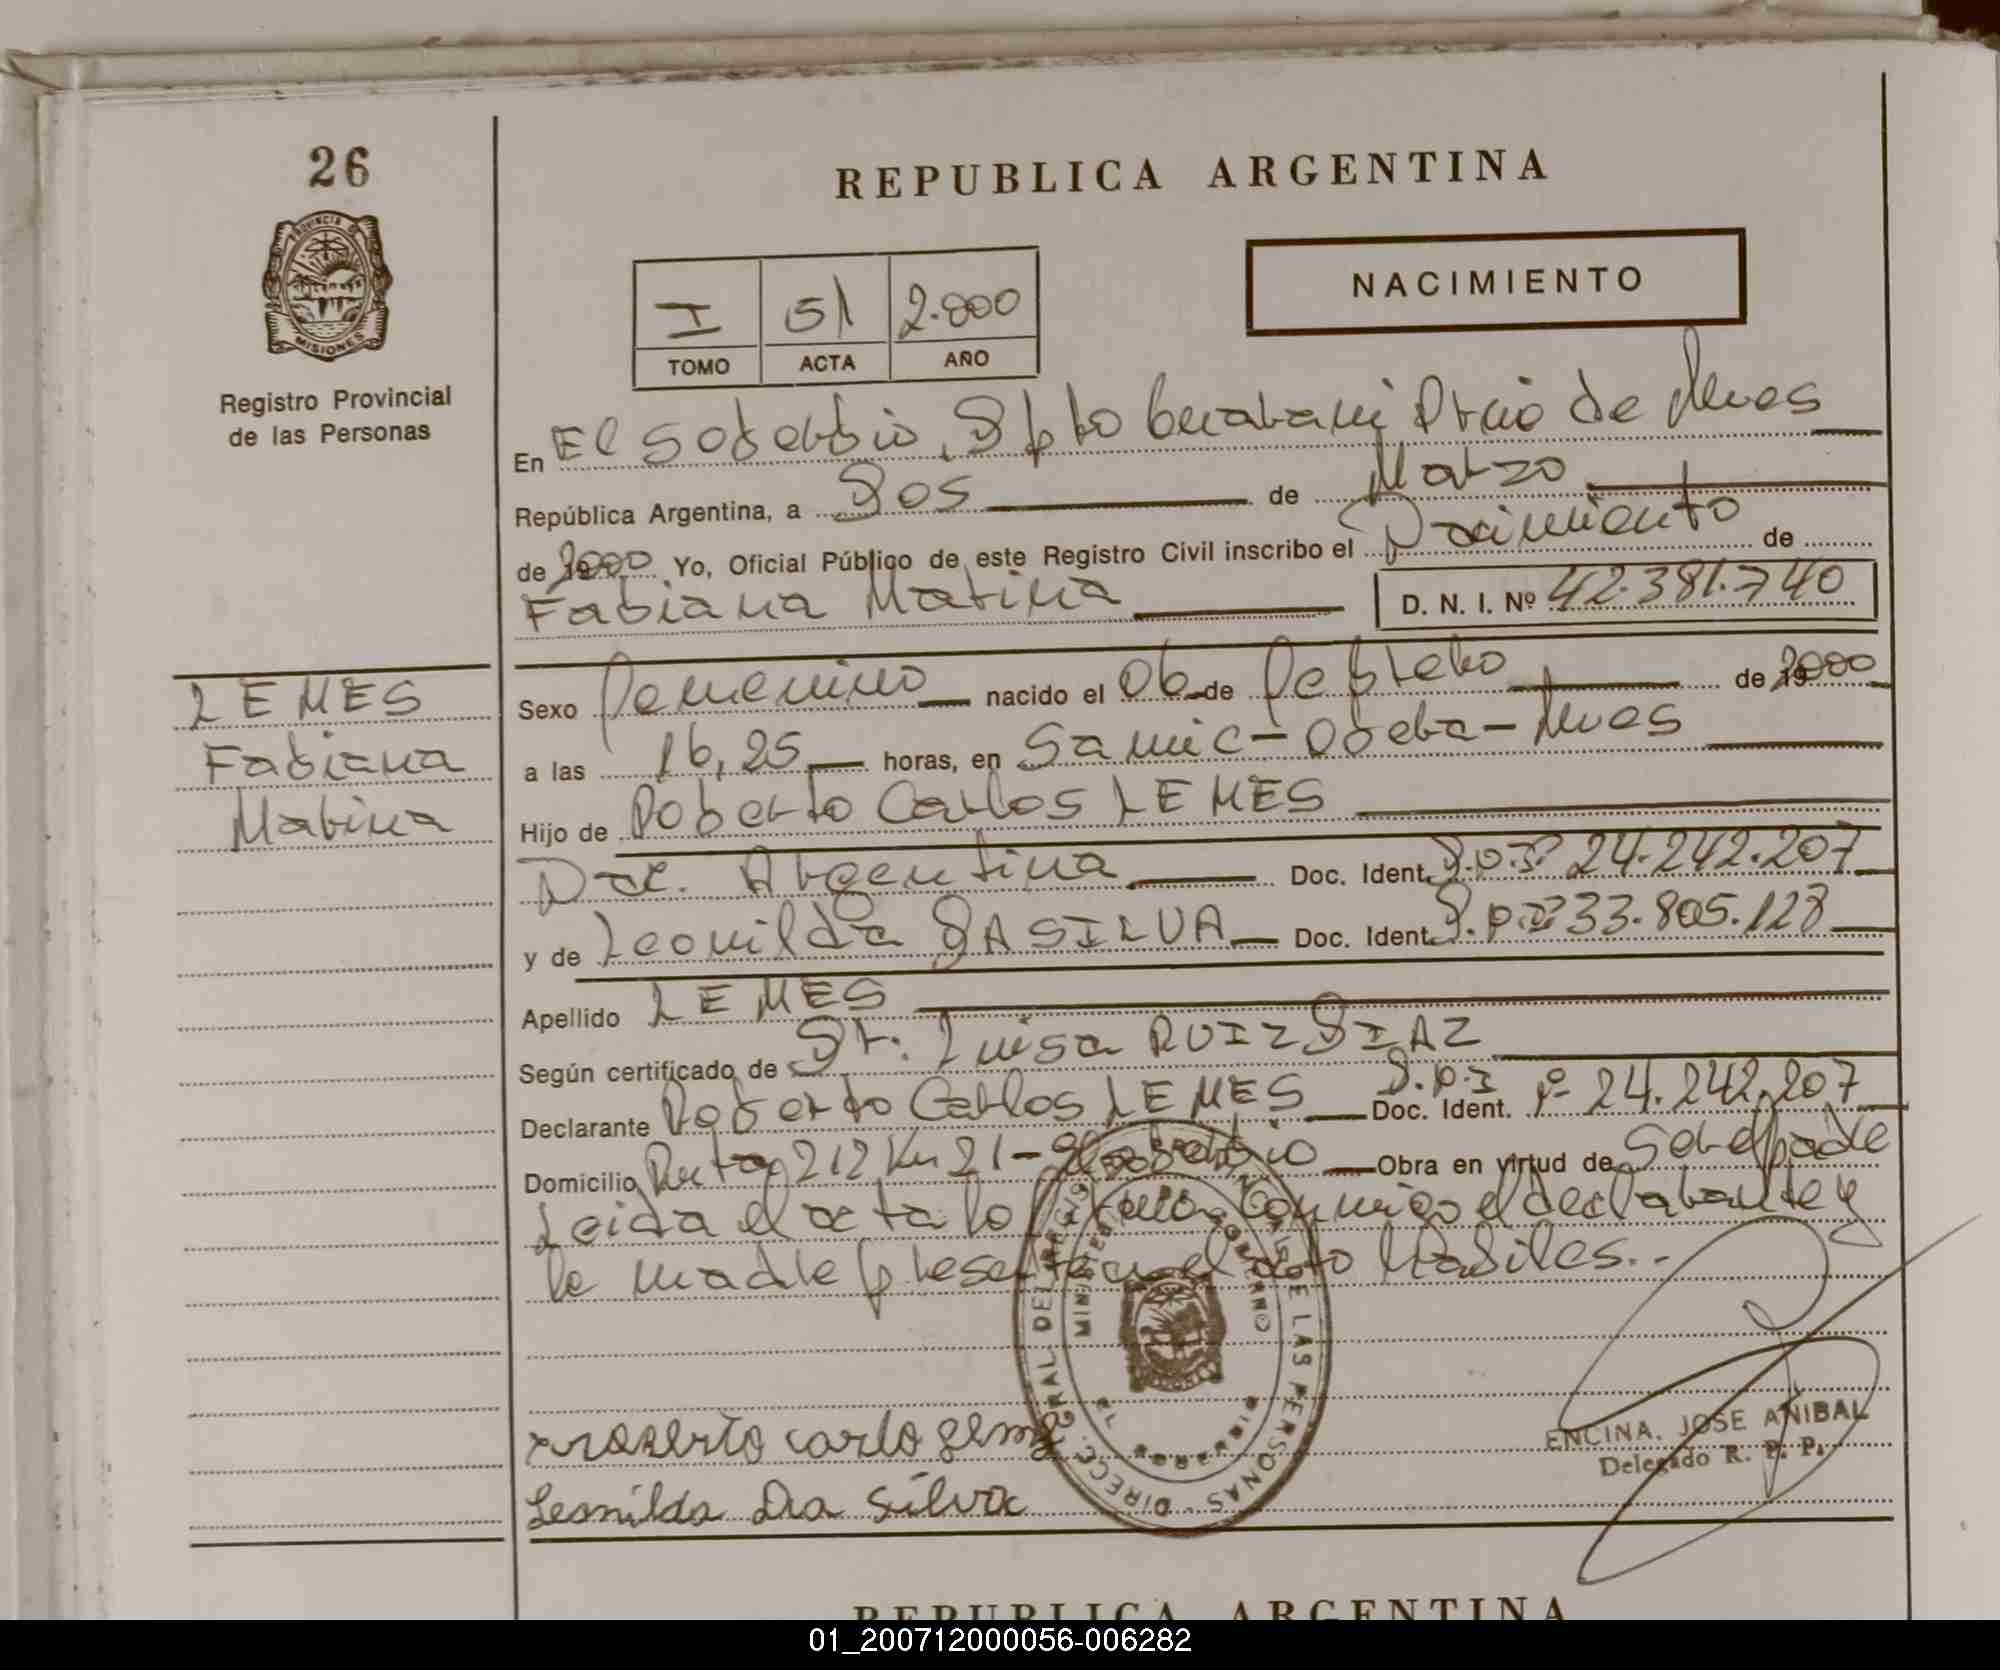 26
PROVINCIA DE
MISIONES
Registro Provincial
de las Personas
REPUBLICA ARGENTINA
NACIMIENTO
I 51 2.000
TOMO ACTA AÑO
En El Soberbio, Dpto Guarani Prcia de Mnes
República Argentina, a Dos de Marzo
de 2000 Yo, Oficial Público de este Registro Civil inscribo el Nacimiento de
Fabiana Marina D. N. I. Nº 42.381.740
LEMES
Fabiana
Marina
Sexo Femenino nacido el 06 de Febrero de 2000
a las 16,25 horas, en Samic - Obera - Mnes
Hijo de Roberto Carlos LEMES
Nac. Argentina Doc. Ident. D.N.I. 24.242.207
y de Leonilda DA SILVA Doc. Ident. D.N.I. 33.805.128
Apellido LEMES
Según certificado de Dr. Luisa RUIZ DIAZ
Declarante Roberto Carlos LEMES Doc. Ident. D.N.I Nº 24.242.207
Domicilio Ruta 212 Km 21 - El Soberbio Obra en virtud de Ser el padre
Leida el acta lo firma conmigo el declarante y
la madre presente en el acto Habiles..
DIRECC. GRAL DEL REGISTRO DE LAS PERSONAS
MINISTERIO GOBIERNO
Roberto carlo Leme
Leonilda Da Silva
ENCINA, JOSE ANIBAL
Delegado R. P. P.
REPUBLICA ARGENTINA
01_200712000056-006282